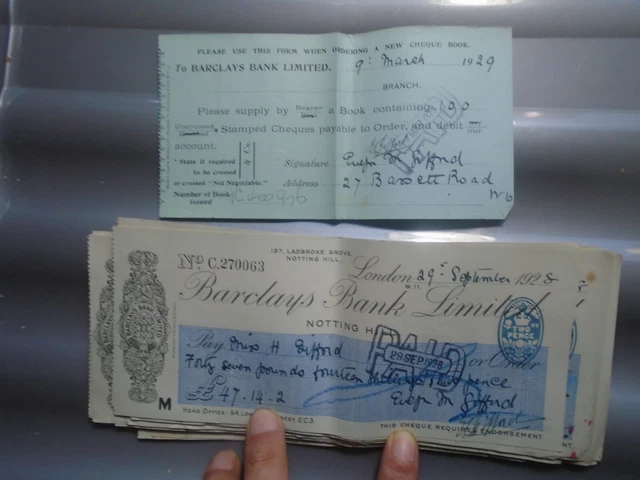 PLEASE USE THIS FORM WHEN ORDERING A NEW CHEQUE BOOK.
To BARCLAYS BANK LIMITED, 9. March 1929
BRANCH.
Please supply by Bearer a Book containing 100
Stamped Cheques payable to Order, and debit our
account.
"State if required
to be crossed
or crossed "Not Negotiable."
& Co.
Signature M Gifford
Address 27 Bassett Road
Number of Book
issued
No C.270063
137, LADBROKE GROVE,
NOTTING HILL,
W.11.
London 29. September 1928
Barclays Bank Limited
NOTTING H
TWO PENCE
PAID
28 SEP 1928
Pay Miss H Gifford or Order
Forty seven pounds fourteen shillings & two pence
£ 47-14-2
M Gifford
M
HEAD OFFICE: 54, STREET, E.C.3.
THIS CHEQUE REQUIRES ENDORSEMENT.